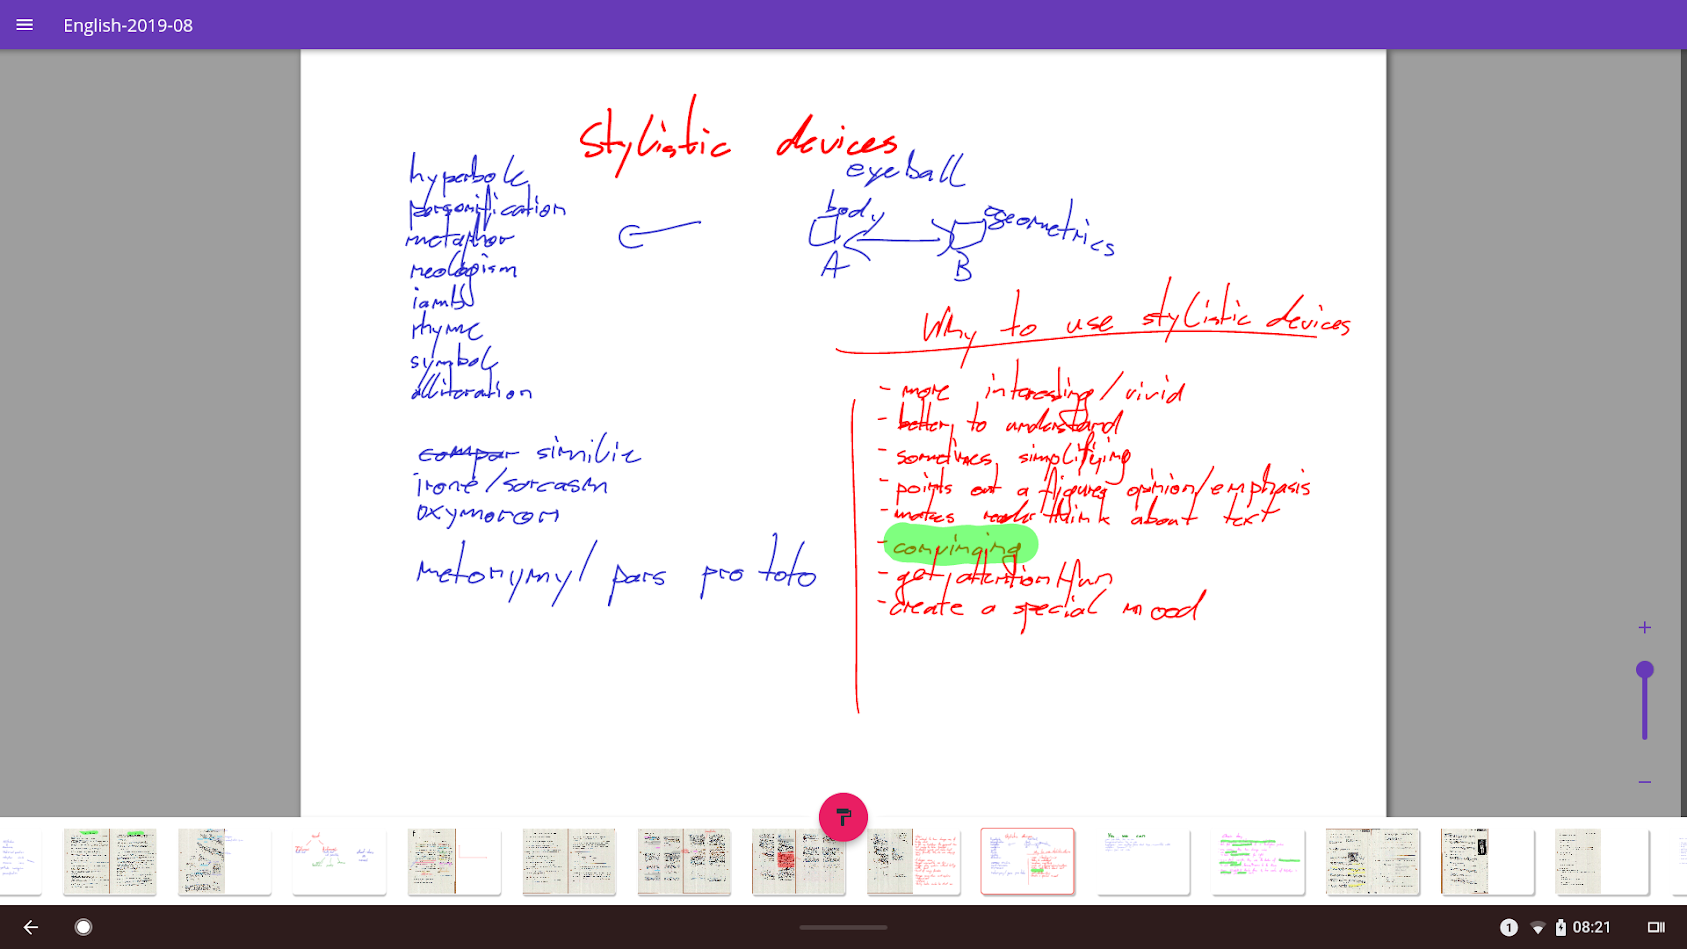 English-2019-08
Stylistic devices
hyperbole
personification
metapher
neologism
iamb
rhyme
symbole
alliteration
compar similie
irone/sarcasm
oxymoron
metonymy/ pars pro toto
eyeball
body
geometrics
A
B
Why to use stylistic devices
- more interesting/vivid
- better to understand
- sometimes simplifying
- points out a figures opinion/emphasis
- makes reader think about text
- convinging
- get attention/fun
- create a special mood
1
08:21